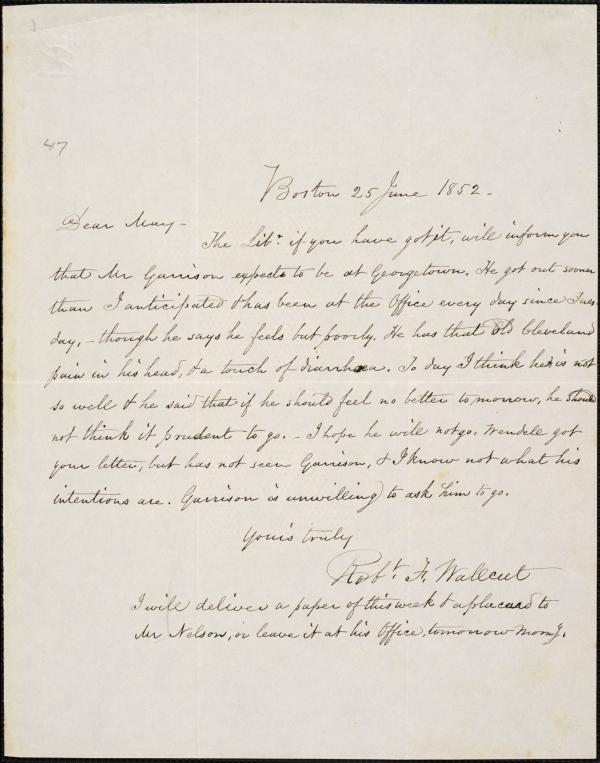 47
Boston 25 June 1852.
Dear May -
The Libr. if you have got it, will inform you
that Mr Garrison expects to be at Georgetown. He got out sooner
than I anticipated & has been at the Office every day since Tues-
day, - though he says he feels but poorly. He has that old Cleveland
pain in his head, & a touch of diarrhœa. To day I think he is not
so well & he said that if he should feel no better to morrow, he should
not think it prudent to go. - I hope he will not go. Wendell got
your letter, but has not seen Garrison, & I know not what his
intentions are. Garrison is unwilling to ask him to go.
Yours truly
Robt. F. Wallcut
I will deliver a paper of this week & a placard to
Mr Nelson, or leave it at his Office, tomorrow morng.